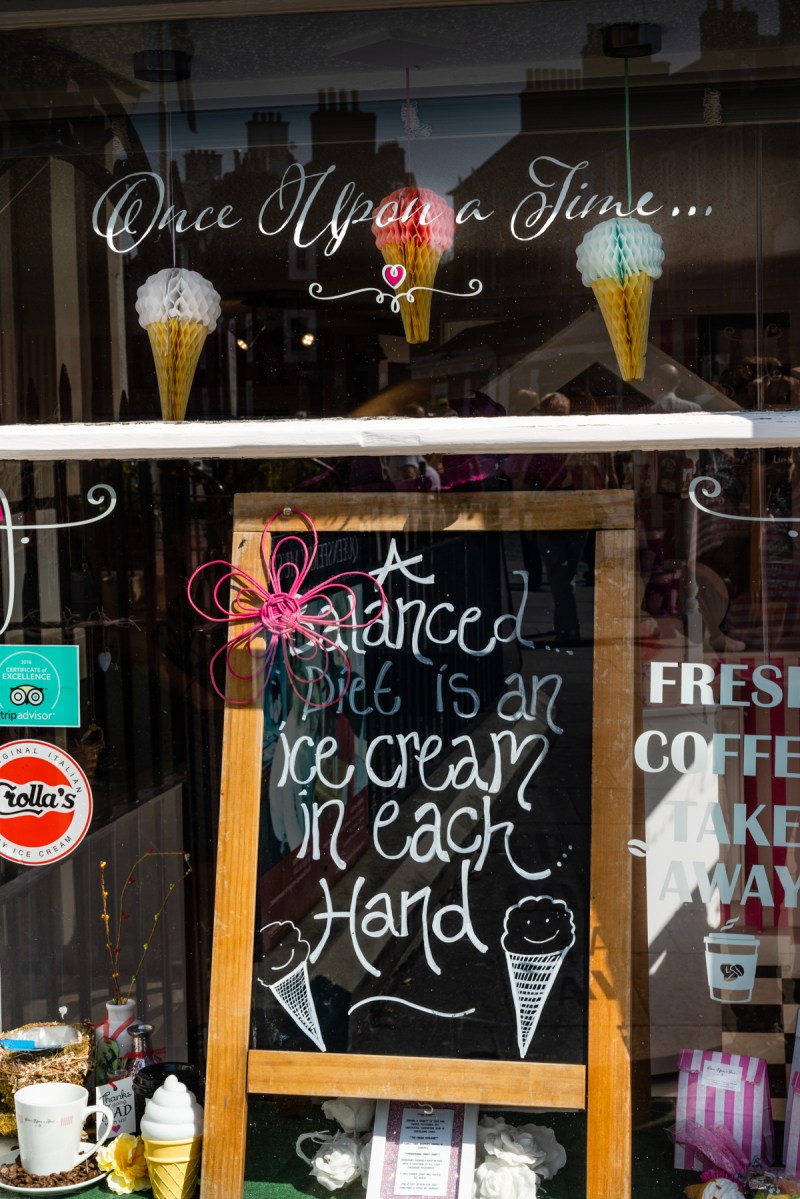 Once Upon a Time...
A
balanced...
Diet is an
ice cream
in each...
Hand
2018
CERTIFICATE of
EXCELLENCE
tripadvisor
ORIGINAL ITALIAN
Crolla's
ICE CREAM
FRESH
COFFEE
TAKE
AWAY
Thanks
DAD